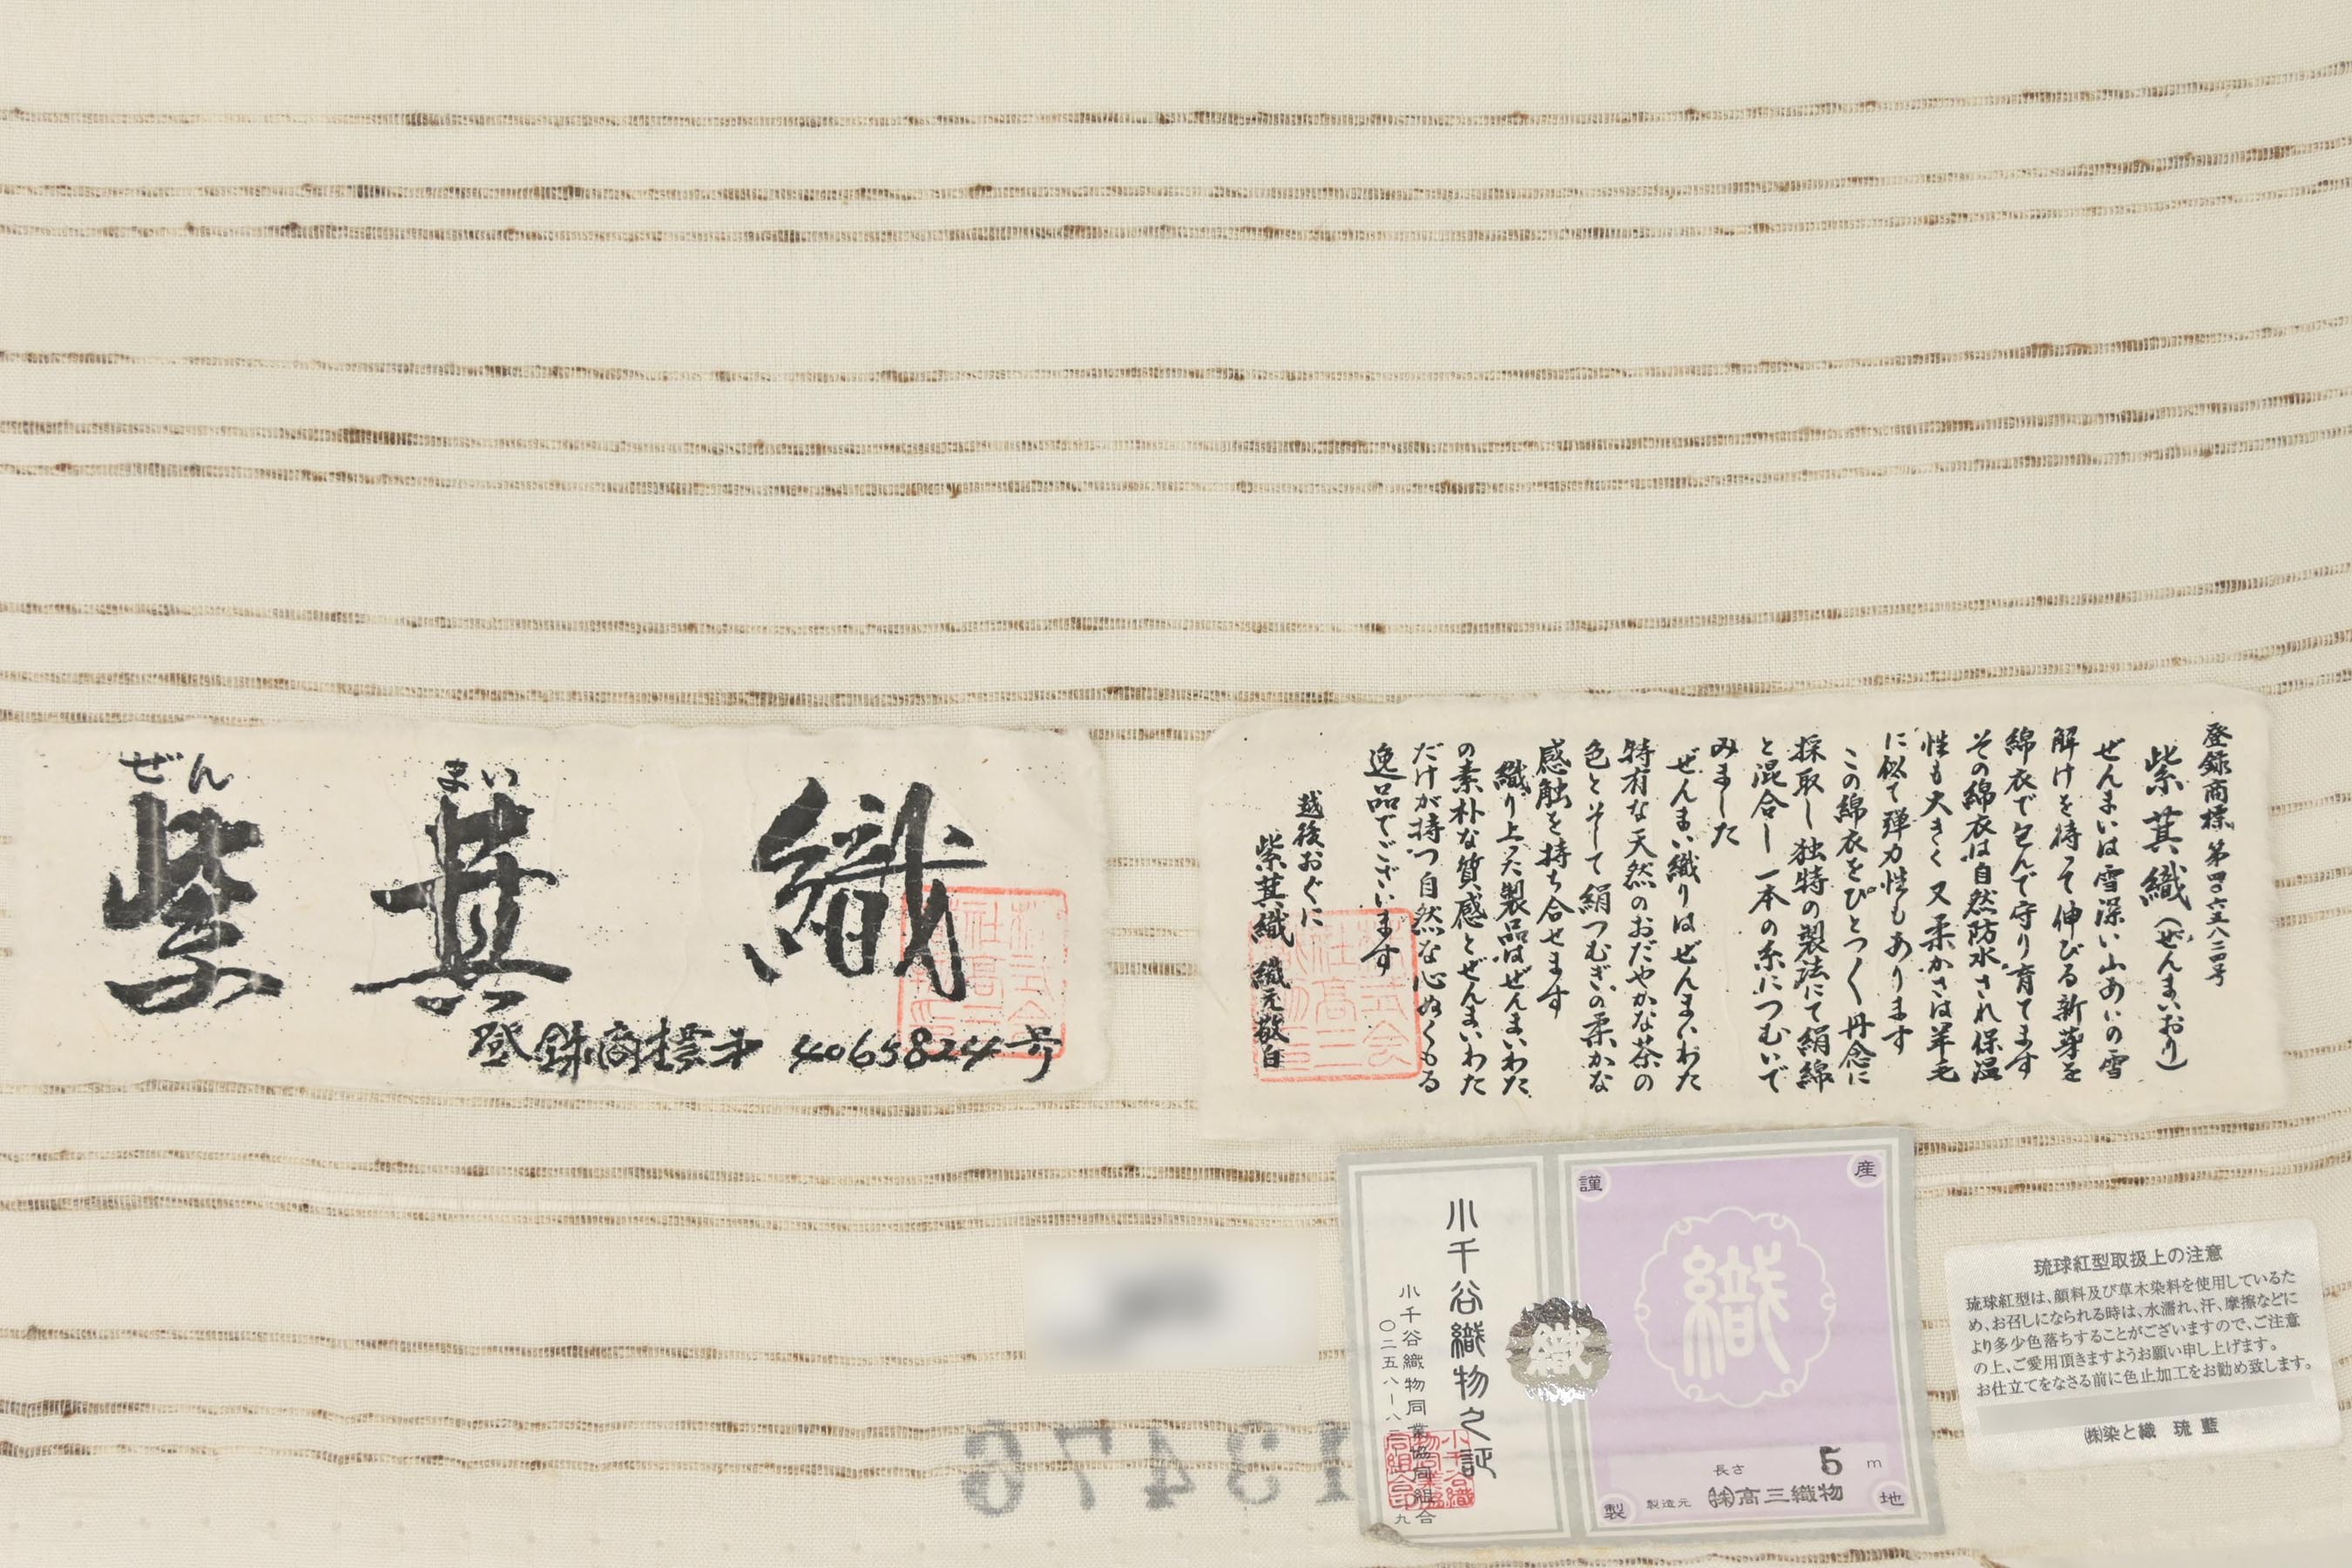 ぜんまい
紫萁織
登録商標才 4065824号
登録商標 第四〇六五八二四号
紫萁織(ぜんまいおり)
ぜんまいは雪深い山あいの雪
解けを待って伸びる新芽を
綿衣で包んで守り育てます
その綿衣は自然防水され保温
性も大きく又柔かさは羊毛
に似て弾力性もあります
この綿衣をひとつ〱丹念に
採取し独特の製法にて絹綿
と混合し一本の糸につむいで
みました
ぜんまい織りはぜんまいわた
特有な天然のおだやかな茶の
色とそして絹つむぎの柔かな
感触を持ち合せます
織り上った製品はぜんまいわた
の素朴な質感とぜんまいわた
だけが持つ自然な心ぬくもる
逸品でございます
越後おぐに
紫萁織 織元敬白
小千谷織物之証
小千谷織物同業協同組合
織
謹
産
製
地
織
長さ 5 m
製造元 ㈱高三織物
琉球紅型取扱上の注意
琉球紅型は、顔料及び草木染料を使用しているた
め、お召しになられる時は、水濡れ、汗、摩擦などに
より多少色落ちすることがございますので、ご注意
の上、ご愛用頂きますようお願い申し上げます。
お仕立てをなさる前に色止加工をお勧め致します。
㈱染と織 琉藍
13476